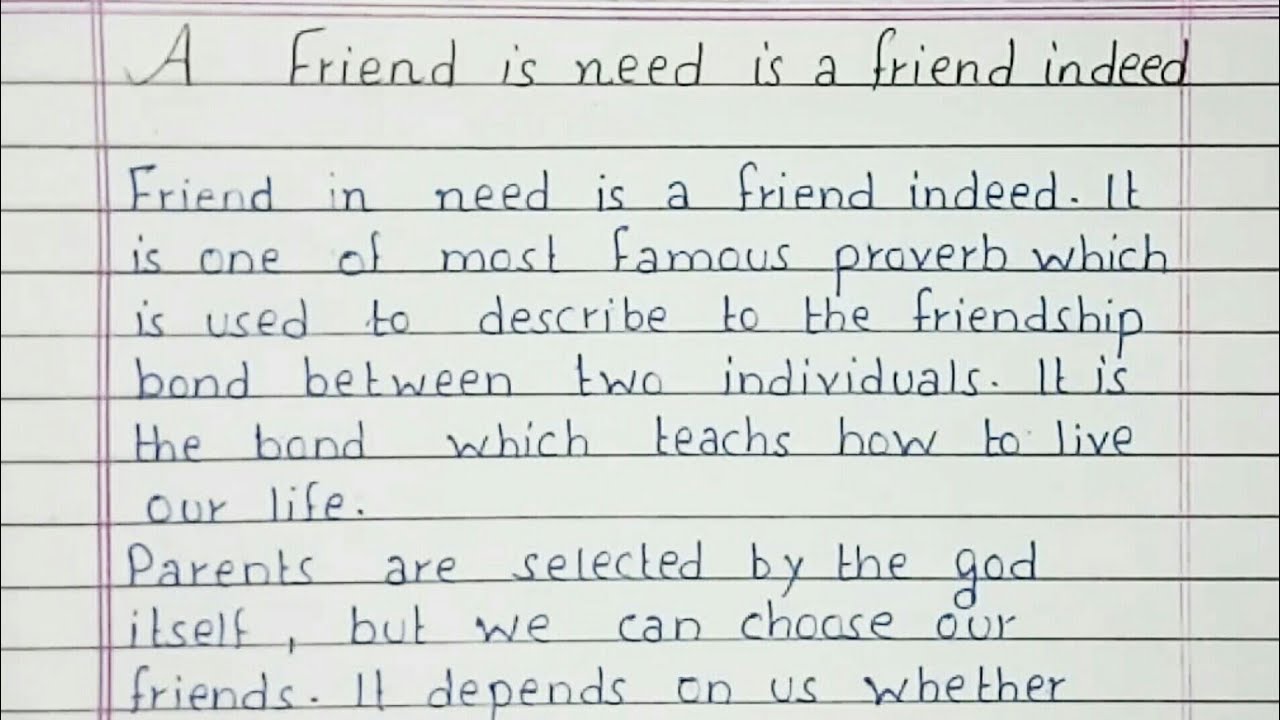 A Friend is need is a friend indeed
Friend in need is a friend indeed. It
is one of most famous proverb which
is used to describe to the friendship
bond between two individuals. It is
the bond which teachs how to live
our life.
Parents are selected by the god
itself, but we can choose our
friends. It depends on us whether